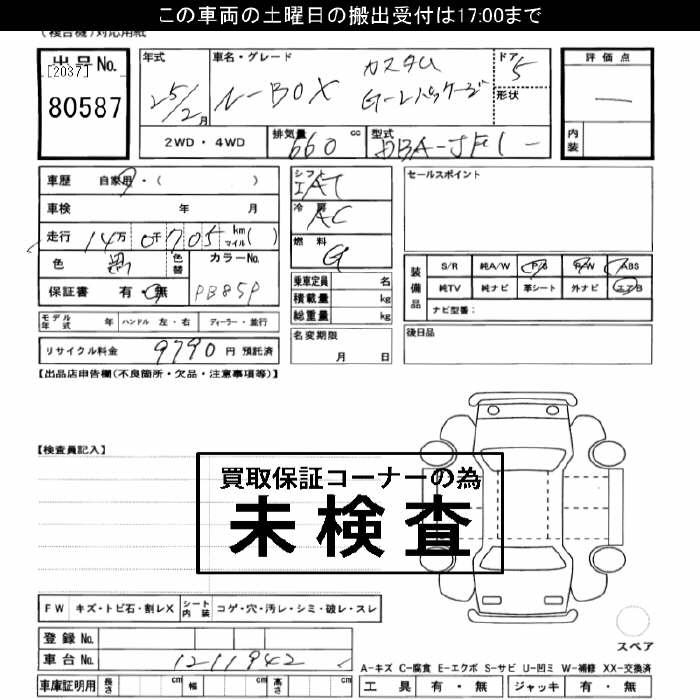 この車両の土曜日の搬出受付は17:00まで
(複合機)対応用紙
出品No.
[2037]
80587
年式
25/2月
車名・グレード
N-BOX
カスタム
G-Lパッケージ
ドア
5
形状
評価点
—
内装
2WD・4WD
排気量
660 cc
型式
DBA-JF1
車歴 自家用・( )
車検 年 月
走行 14万0千705km マイル( )
色 黒
色替
カラーNo.
PB85P
保証書 有・無
モデル年式 年 ハンドル 左・右 ディーラー・並行
リサイクル料金 9790 円 預託済
シフト
IAT
冷房
AC
燃料
G
乗車定員 名
積載量 kg
総重量 kg
名変期限
月 日
セールスポイント
装備品
S/R 純A/W P/S P/W ABS
純TV 純ナビ 革シート 外ナビ エアB
ナビ型番:
後日品
【出品店申告欄(不良箇所・欠品・注意事項等)】
【検査員記入】
買取保証コーナーの為
未検査
FW キズ・トビ石・割レX シート内装 コゲ・穴・汚レ・シミ・破レ・スレ
登録No.
車台No. 1211942
車庫証明用 長さ cm 幅 cm 高さ cm
スペア
A-キズ C-腐食 E-エクボ S-サビ U-凹ミ W-補修 XX-交換済
工具 有・無 ジャッキ 有・無